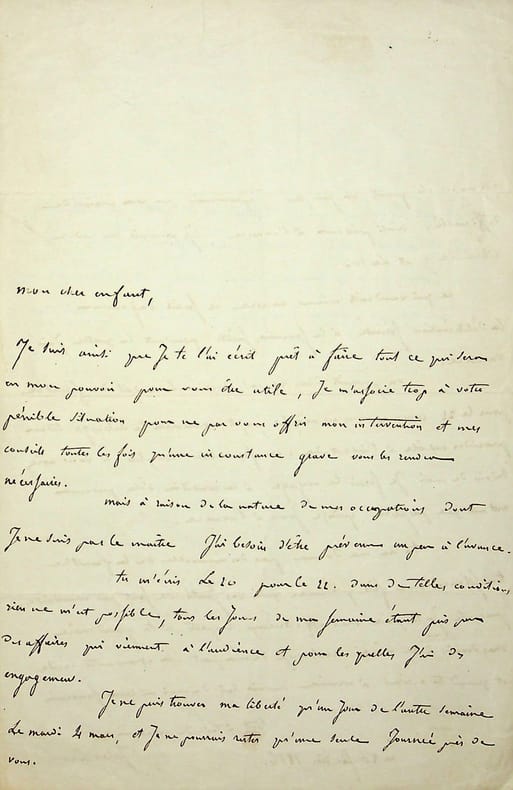 mon cher enfant,
Je suis ainsi que Je te l'ai écrit prêt à faire tout ce qui sera
en mon pouvoir pour vous être utile, Je m'associe trop à votre
pénible situation pour ne pas vous offrir mon intervention et mes
conseils toutes les fois qu'une circonstance grave vous les rendra
nécessaires.
mais à raison de la nature de mes occupations dont
Je ne suis pas le maître J'ai besoin d'être prévenu un peu à l'avance.
tu m'écris le 20 pour le 22. dans de telles conditions
rien ne m'est possible, tous les Jours de ma semaine étant pris par
des affaires qui viennent à l'audience et pour les quelles J'ai des
engagemens.
Je ne puis trouver ma liberté qu'un Jour de l'autre semaine
le mardi 4 mars, et Je ne pourrais rester qu'une seule Journée près de
vous.